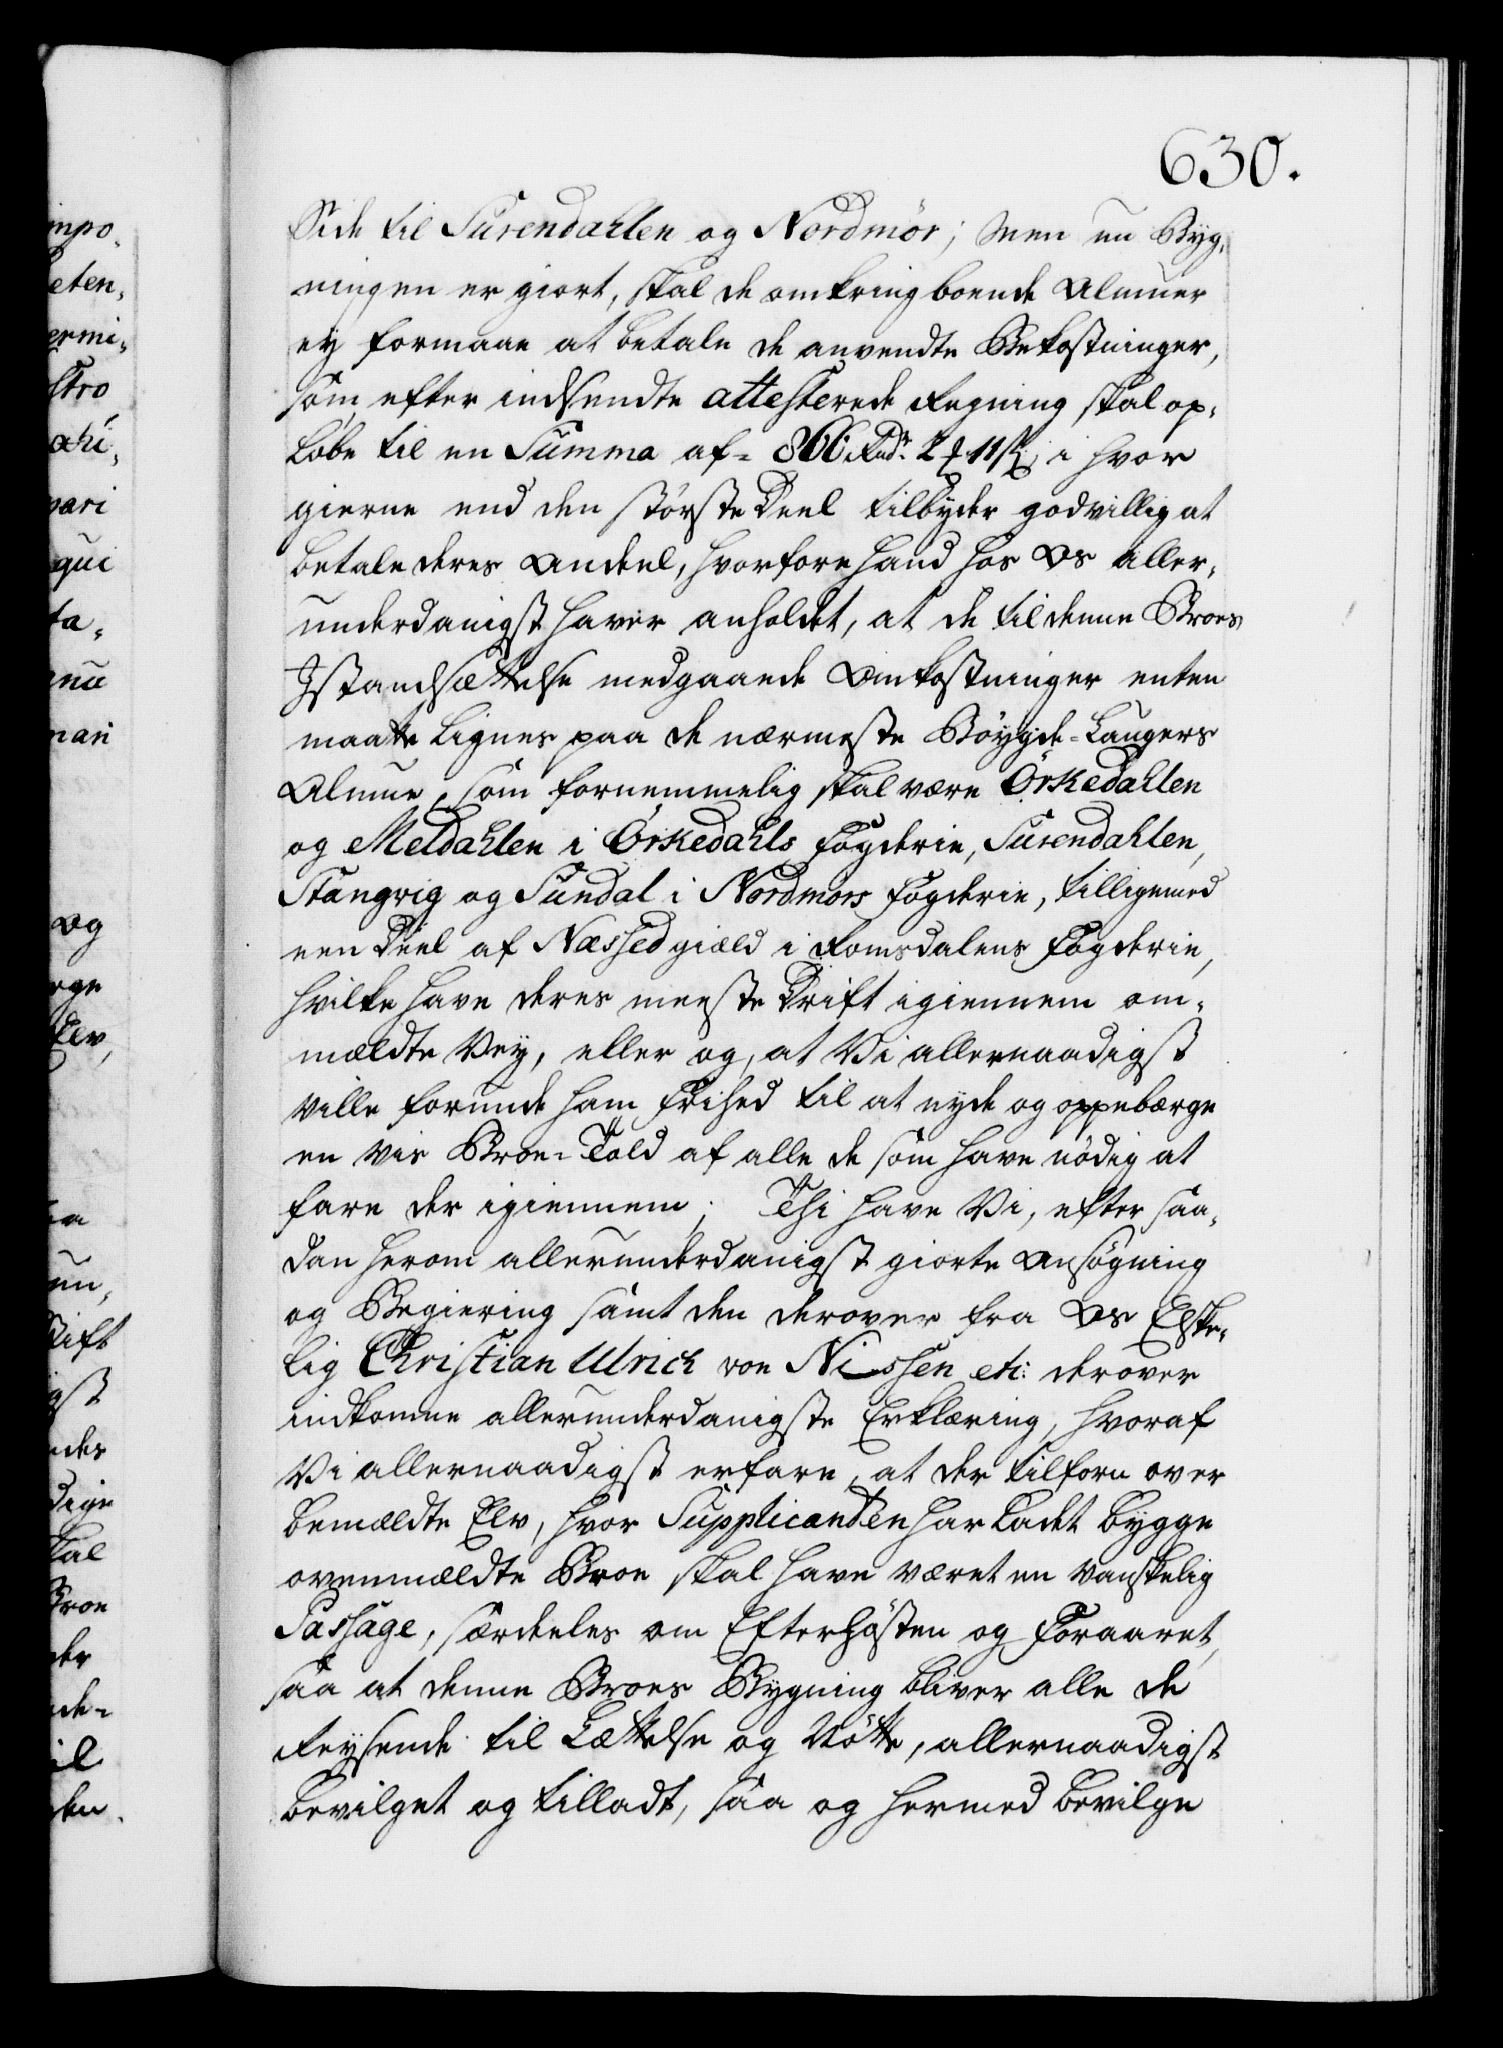 630.
Side til Surendahlen og Nordmör; Men nu Byg,
ningen er giort, skal de omkring boende Almuer
ey formaae at betale de anvendte Bekostninger,
som efter indsendte attesterede Regning skal op,
löbe til en Summa af = 866 Rdr. 2 11 i hvor
gierne end den störste Deel tilbyder godvillig at
betale deres Andeel, hvorfore hand hos Os aller,
underdanigst haver anholdet, at de til denne Broes
Istandsættelse medgaaende Omkostninger enten
maatte Lignes paa de nærmeste Böygde-Laugers
Almue, som fornemmelig skal være Örkedahlen
og Meldahlen i Örkedahls Fogderie, Surendahlen,
Stangvig og Sundal i Nordmors Fogderie, tilligemed
een Deel af Næssed gield i Romsdalens Fogderie,
hvilke have deres meeste Drift igiennem om,
mældte Vey, eller og, at Vi allernaadigst
ville forunde ham Frihed til at nyde og oppebærge
en vis Broe-Told af alle de som have nödig at
fare der igiennem; Thi have Vi, efter saa,
dan herom allerunderdanigst giorte Ansögning
og Begiering samt den derover fra Os Elske,
lig Christian Ulrich von Nissen etc: derover
indkomne allerunderdanigste Erklæring, hvoraf
Vi allernaadigst erfare, at der tilforn over
bemældte Elv, hvor Supplicanten har Ladet bygge
ovenmældte Broe skal have været en vanskelig
Passage, særdeeles om Efterhösten og Foraaret,
saa at denne Broes Bygning bliver alle de
Reysende til Lættelse og Nötte, allernaadigst
bevilget og tilladt, saa og hermed bevilge